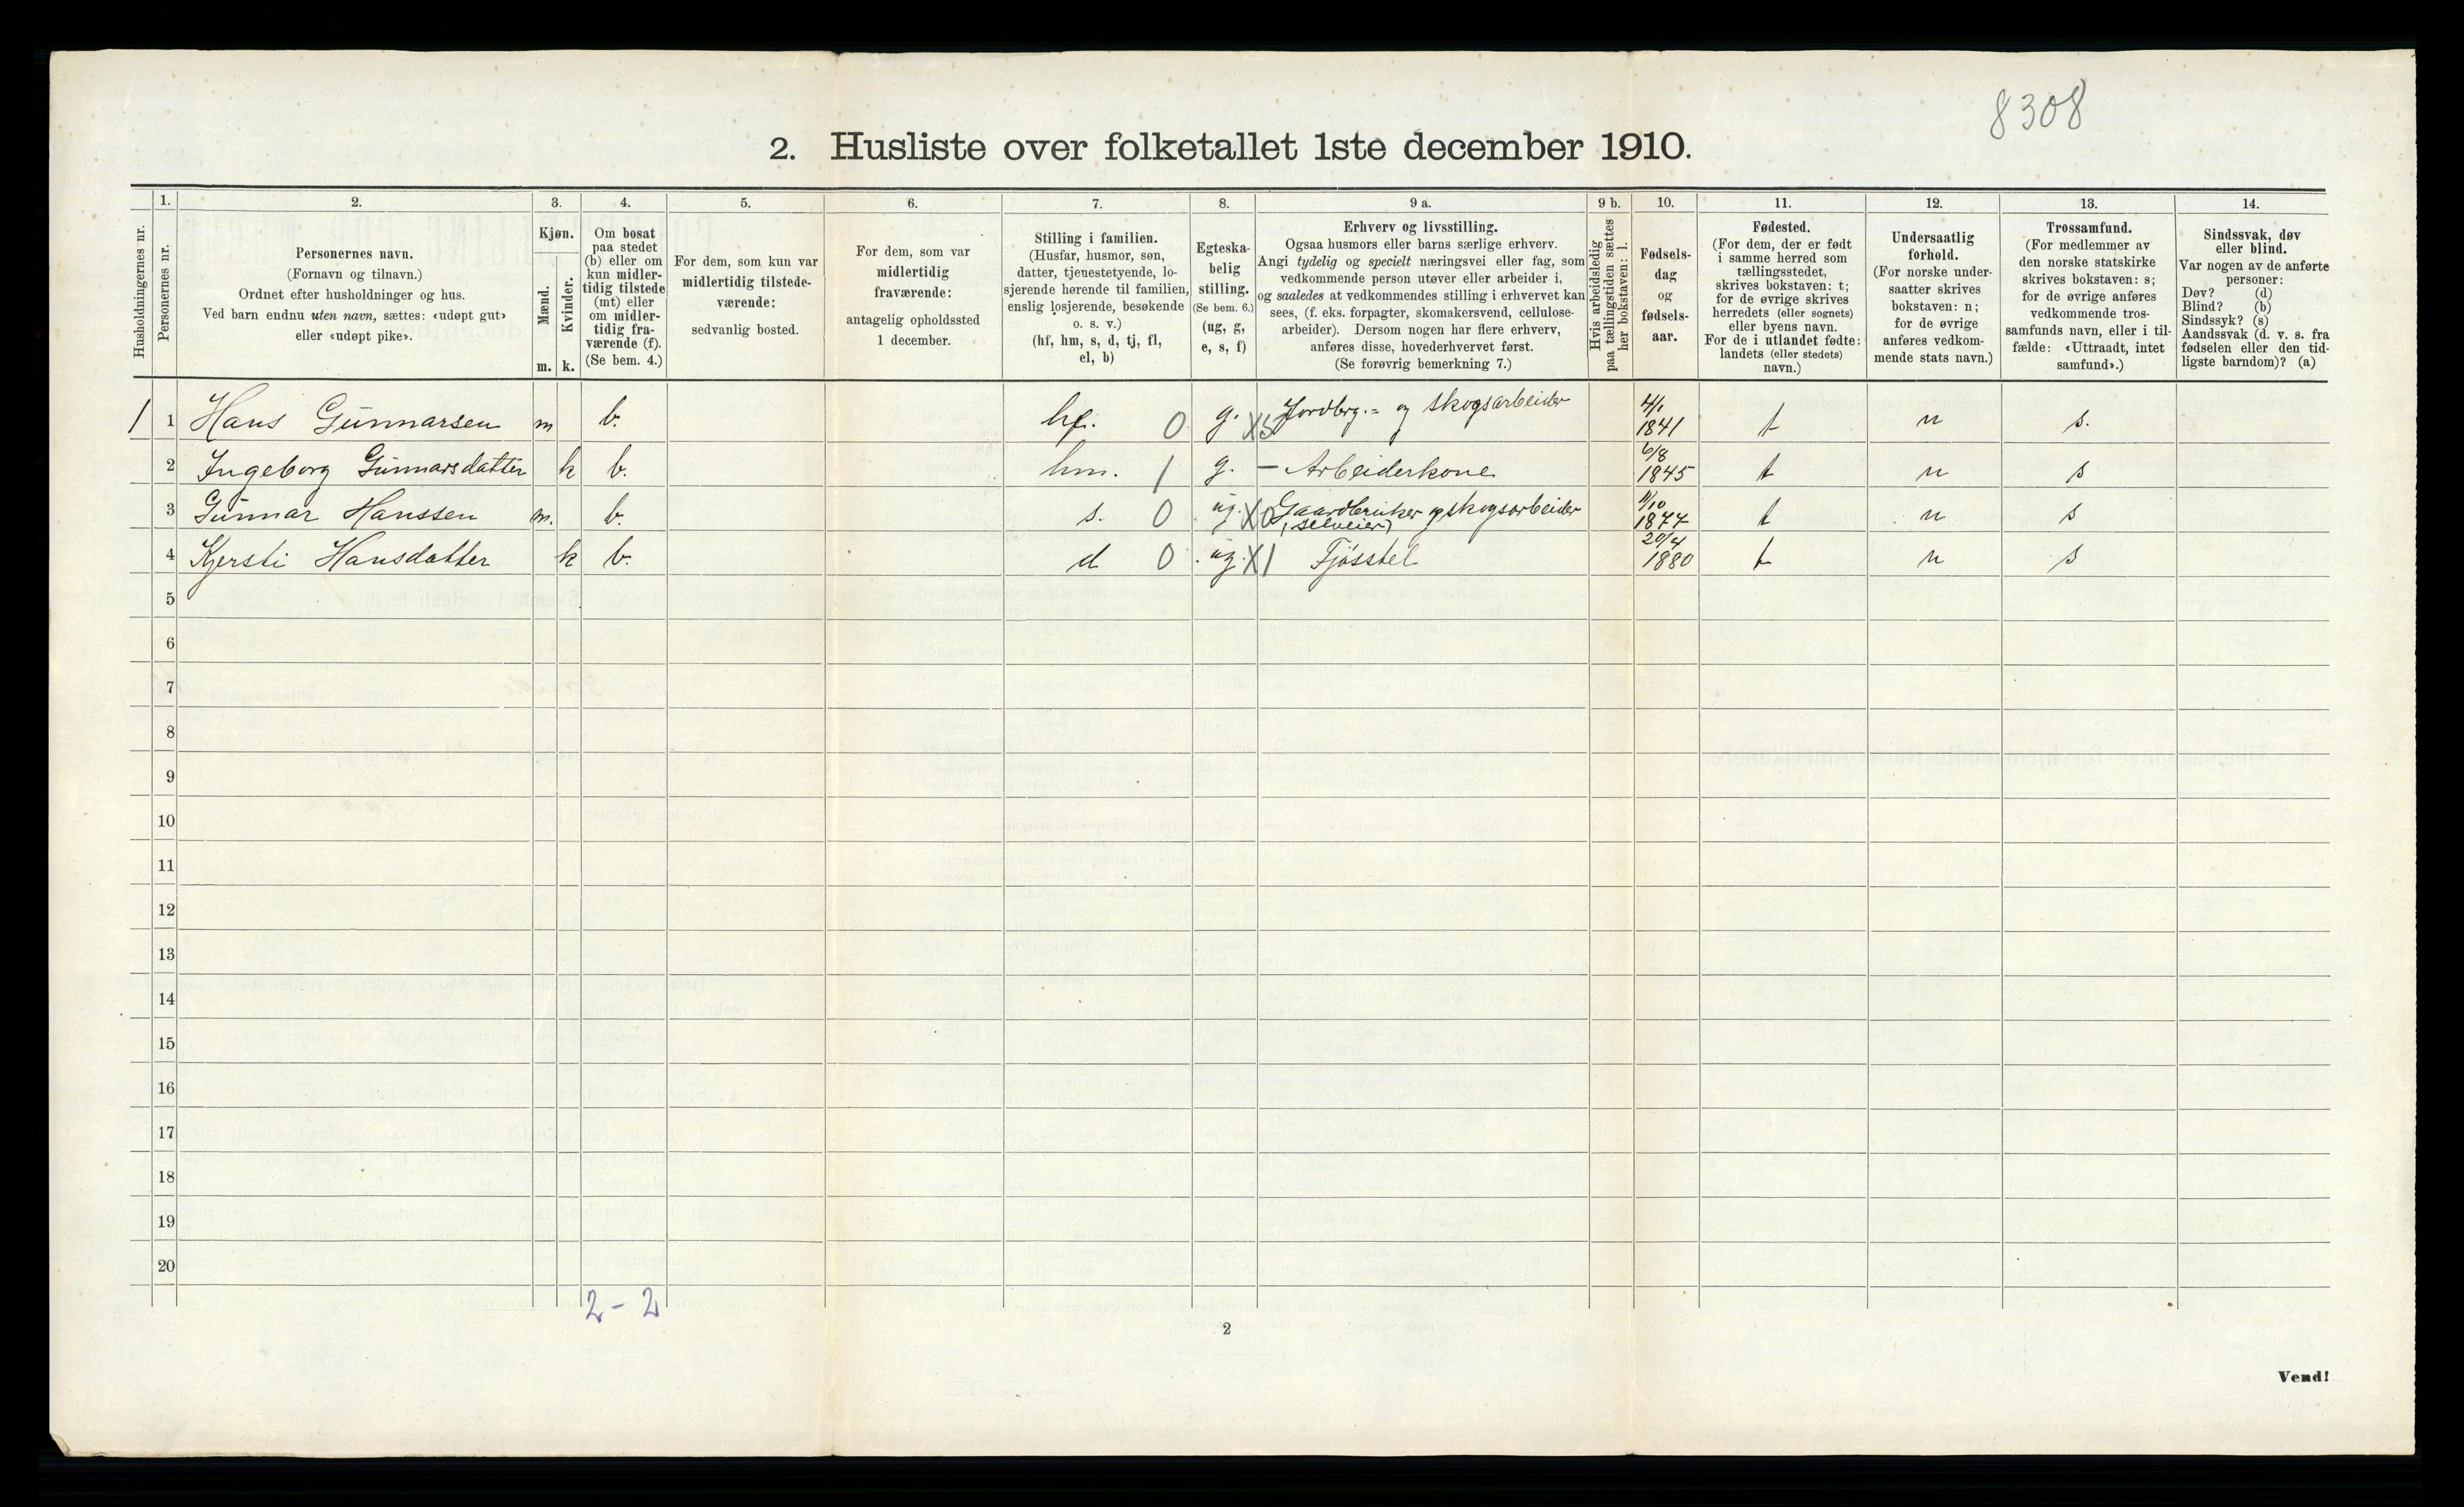 8308
2. Husliste over folketallet 1ste december 1910.
Husholdningernes nr.
1.
Personernes nr.
2.
Personernes navn.
(Fornavn og tilnavn.)
Ordnet efter husholdninger og hus.
Ved barn endnu uten navn, sættes: «udøpt gut»
eller «udøpt pike».
3.
Kjøn.
Mænd.
Kvinder.
m. k.
4.
Om bosat
paa stedet
(b) eller om
kun midler-
tidig tilstede
(mt) eller
om midler-
tidig fra-
værende (f).
(Se bem. 4.)
5.
For dem, som kun var
midlertidig tilstede-
værende:
sedvanlig bosted.
6.
For dem, som var
midlertidig
fraværende:
antagelig opholdssted
1 december.
7.
Stilling i familien.
(Husfar, husmor, søn,
datter, tjenestetyende, lo-
sjerende hørende til familien,
enslig losjerende, besøkende
o. s. v.)
(hf, hm, s, d, tj, fl,
el, b)
8.
Egteska-
belig
stilling.
(Se bem. 6.)
(ug, g,
e, s, f)
9 a.
Erhverv og livsstilling.
Ogsaa husmors eller barns særlige erhverv.
Angi tydelig og specielt næringsvei eller fag, som
vedkommende person utøver eller arbeider i,
og saaledes at vedkommendes stilling i erhvervet kan
sees, (f. eks. forpagter, skomakersvend, cellulose-
arbeider). Dersom nogen har flere erhverv,
anføres disse, hovederhvervet først.
(Se forøvrig bemerkning 7.)
9 b.
Hvis arbeidsledig
paa tællingstiden sættes
her bokstaven: l.
10.
Fødsels-
dag
og
fødsels-
aar.
11.
Fødested.
(For dem, der er født
i samme herred som
tællingsstedet,
skrives bokstaven: t;
for de øvrige skrives
herredets (eller sognets)
eller byens navn.
For de i utlandet fødte:
landets (eller stedets)
navn.)
12.
Undersaatlig
forhold.
(For norske under-
saatter skrives
bokstaven: n;
for de øvrige
anføres vedkom-
mende stats navn.)
13.
Trossamfund.
(For medlemmer av
den norske statskirke
skrives bokstaven: s;
for de øvrige anføres
vedkommende tros-
samfunds navn, eller i til-
fælde: «Uttraadt, intet
samfund».)
14.
Sindssvak, døv
eller blind.
Var nogen av de anførte
personer:
Døv? (d)
Blind? (b)
Sindssyk? (s)
Aandssvak (d. v. s. fra
fødselen eller den tid-
ligste barndom)? (a)
1 1 Hans Gunnarsen m b. hf. 0 g. X5 Jordbrg.= og skogsarbeider 4/1 1841 t n s.
2 Ingeborg Gunnarsdatter k b. hm. 1 g. – Arbeiderkone 6/8 1845 t n s
3 Gunnar Hanssen m. b. s. 0 ug. X0 Gaardbruker og skogsarbeider (selveier) 11/10 1877 t n s
4 Kjersti Hansdatter k b. d 0 ug. X1 Fjøsstel 20/4 1880 t n s
5
6
7
8
9
10
11
12
13
14
15
16
17
18
19
20
2 - 2
2
Vend!